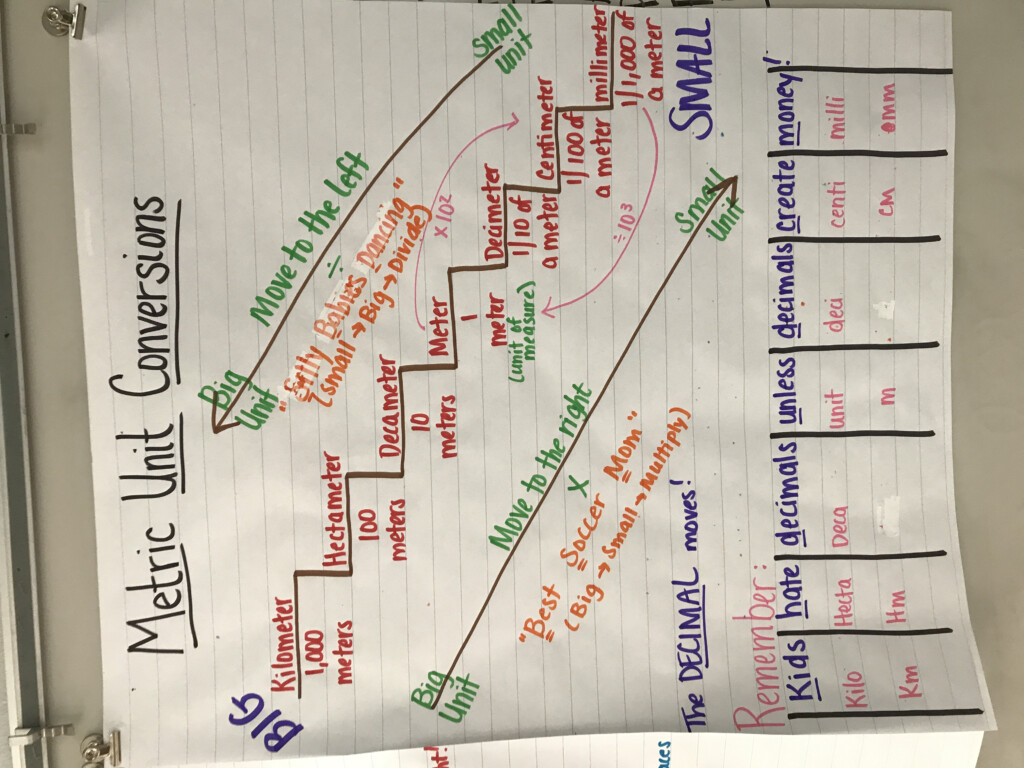 Metric Unit Conversions
BIG
Kilometer
1,000
meters
Hectameter
100
meters
Decameter
10
meters
Meter
1
meter
(unit of
measure)
Decimeter
1/10 of
a meter
Centimeter
1/100 of
a meter
millimeter
1/1,000 of
a meter
SMALL
Big
Unit
Move to the left
÷
Small
Unit
"Silly Babies Dancing"
(Small → Big → Divide)
x 10²
÷ 10³
Big
Unit
Move to the right
X
Small
Unit
"Best Soccer Mom"
(Big → Small → Multiply)
The DECIMAL moves!
Remember:
Kids hate decimals unless decimals create money!
Kilo Hecta Deca unit deci centi milli
Km Hm m cm mm
ht!
aces